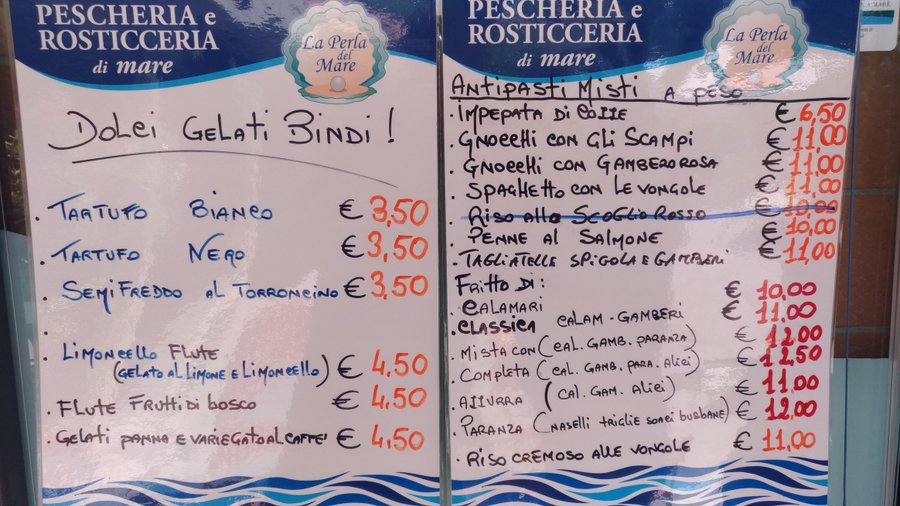 PESCHERIA e
ROSTICCERIA
di mare
La Perla
del
Mare
DOLCI GELATI BINDI!
. TARTUFO BIANCO € 3,50
. TARTUFO NERO € 3,50
. SEMIFREDDO AL TORRONCINO € 3,50
.
. LIMONCELLO FLUTE
(GELATO AL LIMONE E LIMONCELLO) € 4,50
. FLUTE FRUTTI DI BOSCO € 4,50
. GELATI PANNA E VARIEGATO AL CAFFE' € 4,50
PESCHERIA e
ROSTICCERIA
di mare
La Perla
del
Mare
ANTIPASTI MISTI A PESO
. IMPEPATA DI COZZE € 6,50
. GNOCCHI CON GLI SCAMPI € 11,00
. GNOCCHI CON GAMBERO ROSA € 11,00
. SPAGHETTO CON LE VONGOLE € 11,00
. RISO ALLO SCOGLIO ROSSO € 10,00
. PENNE AL SALMONE € 10,00
. TAGLIATELLE SPIGOLA E GAMBERI € 11,00
FRITTO DI:
. CALAMARI € 10,00
. CLASSICA CALAM - GAMBERI € 11,00
. MISTA CON (CAL. GAMB. PARANZA) € 12,00
. COMPLETA (CAL. GAMB. PARA. ALICI) € 12,50
. AZZURRA (CAL. GAM. ALICI) € 11,00
. PARANZA (NASELLI TRIGLIE SOACI BUSBANE) € 12,00
. RISO CREMOSO ALLE VONGOLE € 11,00